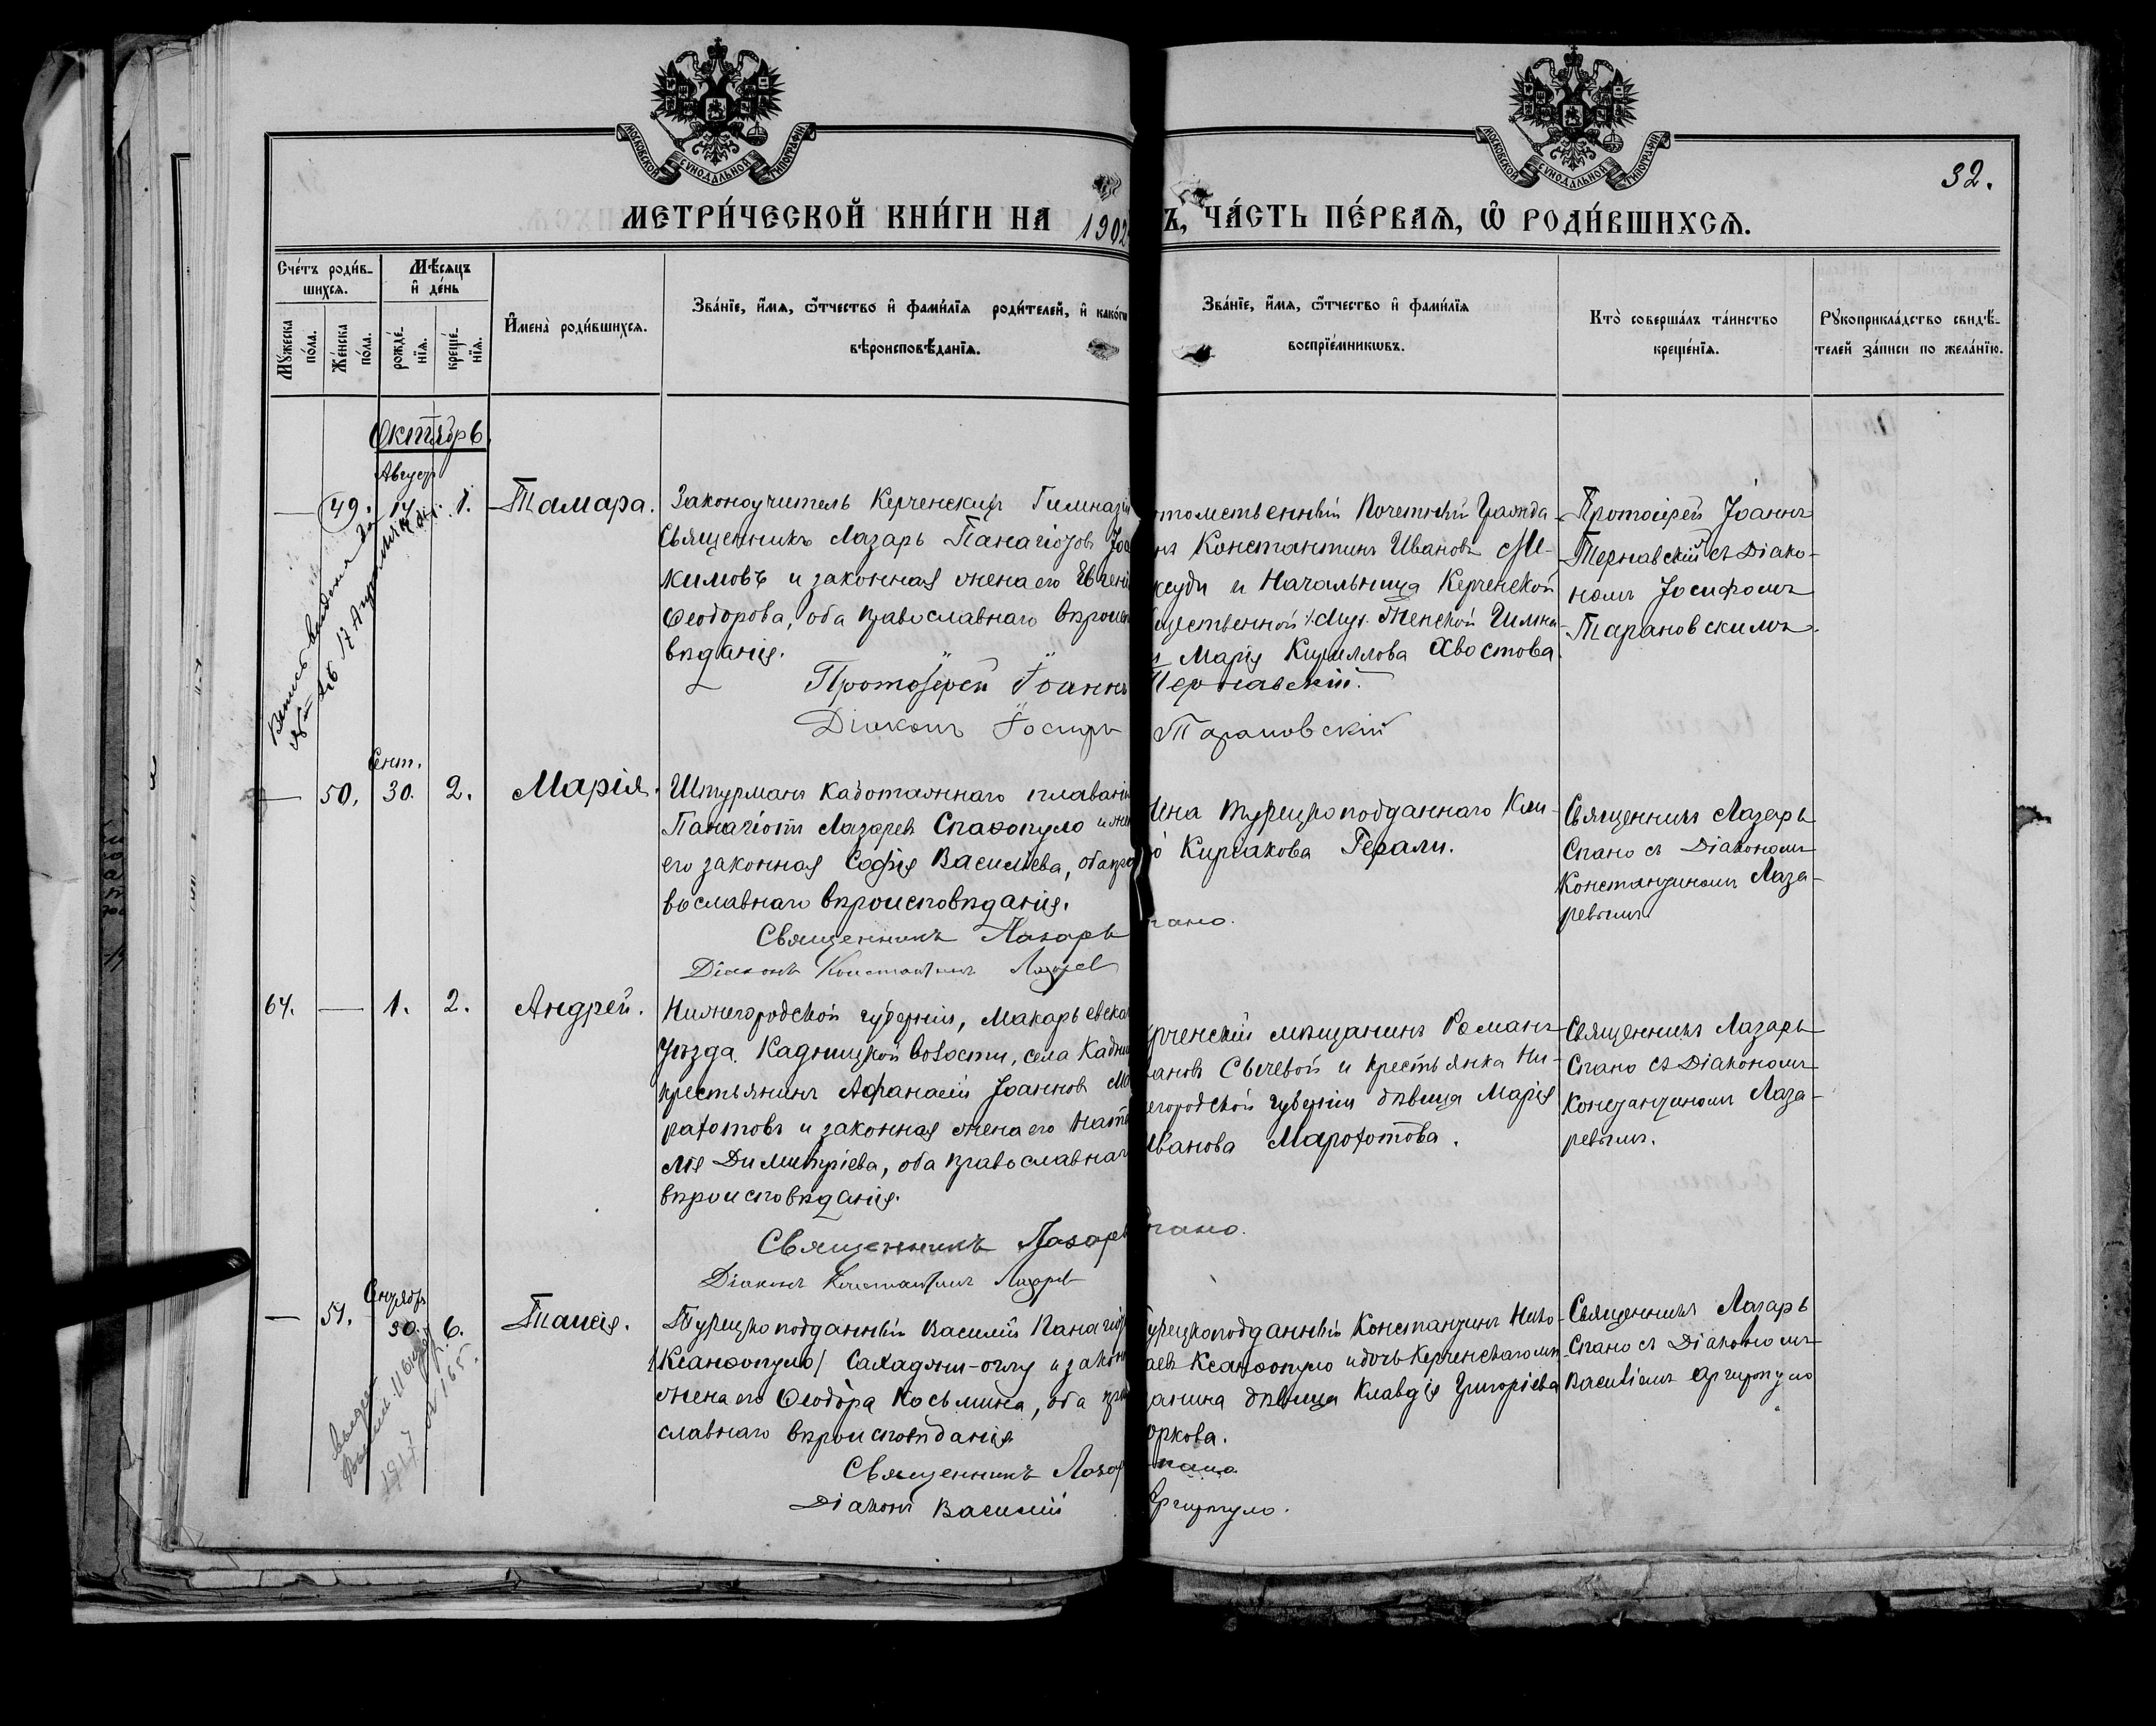 МОСКОВСКОЙ СѴНОДАЛЬНОЙ ТИПОГРАФІИ
МОСКОВСКОЙ СѴНОДАЛЬНОЙ ТИПОГРАФІИ
32.
МЕТРИ́ЧЕСКОЙ КНИ́ГИ НА 1902
Ъ, ЧА́СТЬ ПЕ́РВАѦ, Ѿ РОДИ́ВШИХСѦ.
Сче́тъ роди́в-
шихсѧ.
Мѣ́сѧцъ
и҆ де́нь
Мꙋ́жеска
по́ла.
Же́нска
по́ла.
рожде́-
нїѧ.
креще́-
нїѧ.
И҆мена̀ роди́вшихсѧ.
Зва́нїе, и҆́мѧ, ѻ҆́тчество и҆ фами́лїѧ роди́телей, и҆ како́гѡ
вѣроисповѣ́данїѧ.
Зва́нїе, и҆́мѧ, ѻ҆́тчество и҆ фами́лїѧ
воспрїе́мникѡвъ.
Кто̀ соверша́лъ та́инство
креще́нїѧ.
Рꙋкоприкла́дство свидѣ́-
телей за́писи по жела́нїю.
Октябрь.
Август
49. 14 1. Тамара.
Законоучитель Керченских Гимназі
Священникъ Лазарь Панагіотов Іоа
кимовъ и законная жена его Евгені
Ѳеодорова, оба православнаго вѣроиспо
вѣданія.
Протоіерей Іоаннъ
Діаконъ Іосифъ
отомственный Почетный Гражда-
нъ Константинъ Ивановъ Ме-
ксуди и Начальница Керченской
щественной Женской Гимна
и Марія Кириллова Хвостова.
Тернавскій.
Тарановскій
Протоіерей Іоаннъ
Тернавскій съ Діако-
номъ Іосифомъ
Тарановскимъ.
Сент.
50. 30. 2. Марія.
Штурманъ каботажнаго плавані
Панагіотъ Лазаревъ Спаѳопуло и жен
его законная Софія Васильева, оба пра
вославнаго вѣроисповѣданія.
Священникъ Лазарь
Діаконъ Константинъ Лазарев
Жена турецкоподданнаго
Киріакова Герали.
пано.
Священникъ Лазарь
Спано съ Діакономъ
Константиномъ Лаза-
ревымъ.
64. — 1. 2. Андрей.
Нижегородской губерніи, Макарьевска
уѣзда. Кадницкой волости, села Кадни
крестьянинъ Аѳанасій Іоанновъ Ма
рахотовъ и законная жена его Ната
лія Димитріева, оба православнаг
вѣроисповѣданія.
Священникъ Лазарь
Діаконъ Константинъ Лазарев
рченскій мѣщанинъ Романъ
ановъ Сычевой и крестьянка Ни-
егородской губерніи дѣвица Марія
Иванова Марохотова.
пано.
Священникъ Лазарь
Спано съ Діакономъ
Константиномъ Лаза-
ревымъ.
Сентябр
— 51. 30. 6. Таисія.
Турецкоподданный Василій Панагіот
/Ксанѳопуло/ Сахаджи-оглу и закон
жена его Ѳеодора Косьмина, оба пра
славнаго вѣроисповѣданія
Священникъ Лазар
Діаконъ Василій
Турецкоподданный Константинъ Нико-
аевъ Ксанѳопуло и дочь Керченскаго мѣ
анина дѣвица Клавдія Григоріева
оркова.
пано
Аргиропуло.
Священникъ Лазарь
Спано съ Діакономъ
Василіемъ Аргиропуло
1917 165.